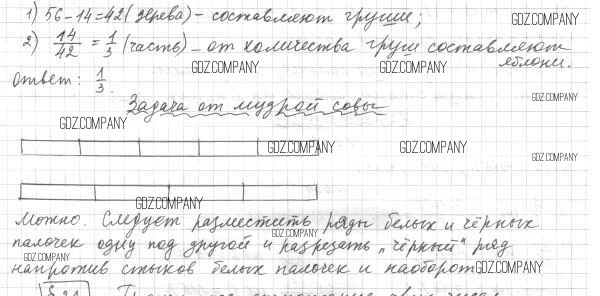 1) 56-14=42 (дерева) - составляют груши;
GDZ.COMPANY
2) 14/42 = 1/3 (часть) - от количества груш составляют
яблони.
GDZ.COMPANY GDZ.COMPANY
Ответ: 1/3.
GDZ.COMPANY
Задача от мудрой совы
GDZ.COMPANY
GDZ.COMPANY GDZ.COMPANY
GDZ.COMPANY
GDZ.COMPANY
Можно. Следует разместить ряды белых и чёрных
GDZ.COMPANY
палочек одну под другой и разрезать "чёрный" ряд
GDZ.COMPANY
напротив стыков белых палочек и наоборот
GDZ.COMPANY